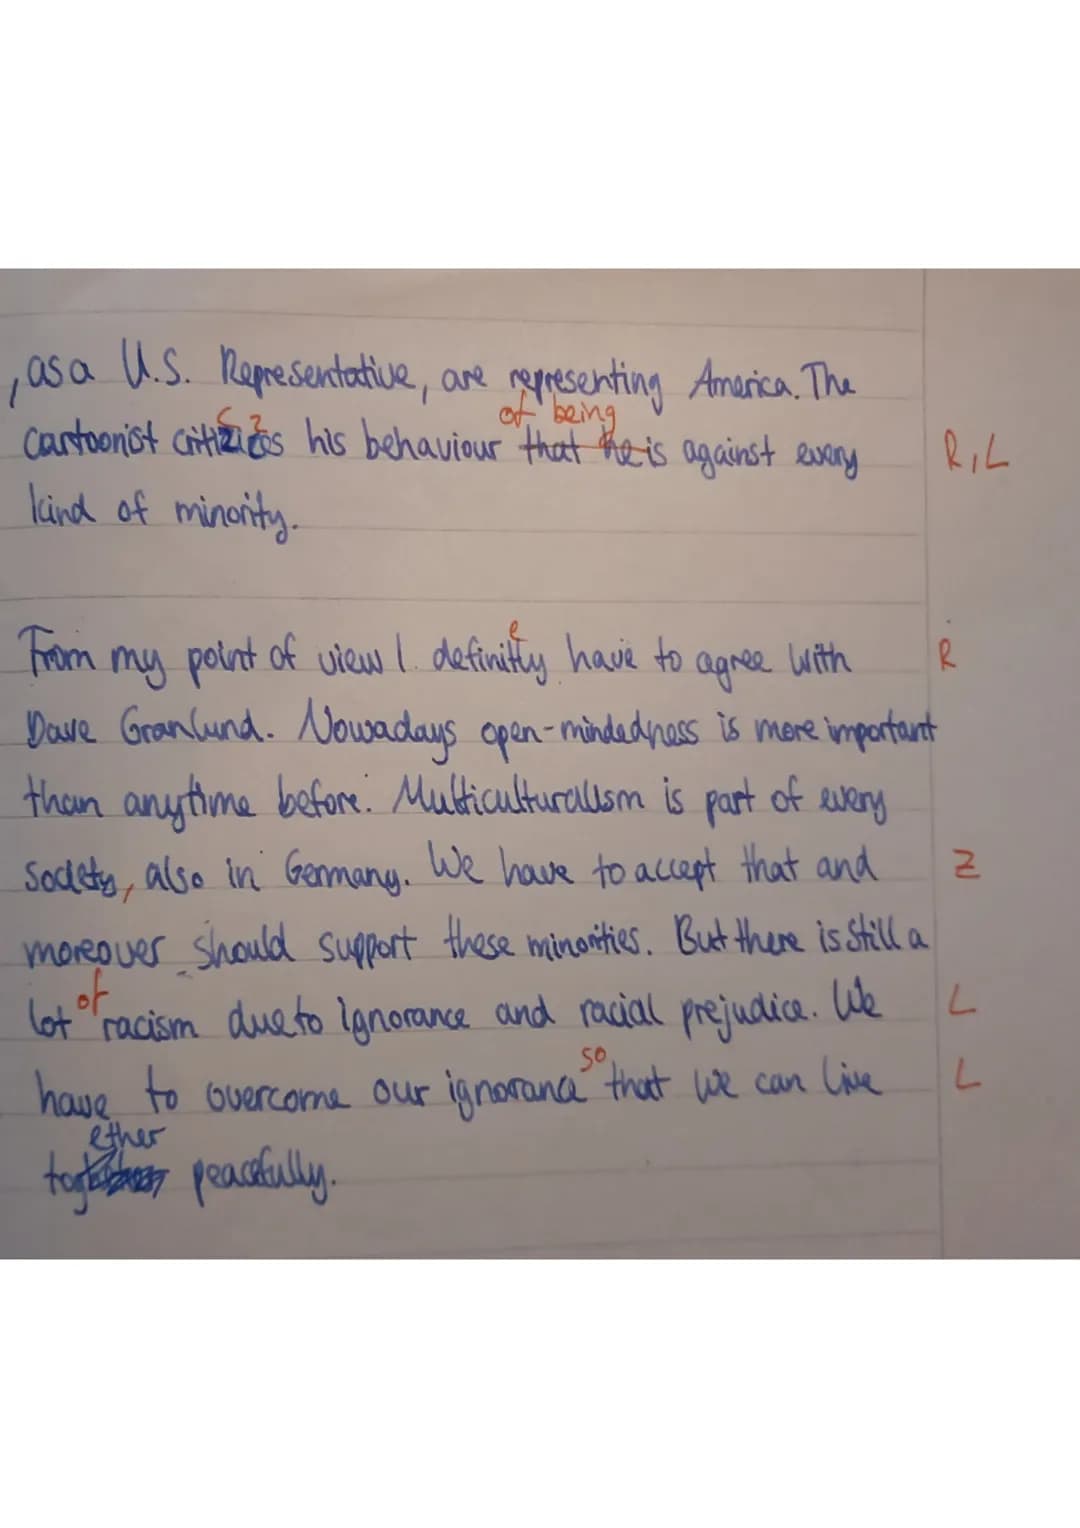 , as a U.S. Representative, are representing America. The
of being
cartoonist critizizes his behaviour that he is against every R, L
kind of minority.
e
From my point of view I definitly have to agree with R
Dave Granlund. Nowadays open-mindedness is more important
than anytime before. Multiculturalism is part of every
society, also in Germany. We have to accept that and Z
moreover should support these minorities. But there is still a
of
lot racism due to ignorance and racial prejudice. We L
so
have to overcome our ignorance that we can live L
ether
tog peacefully.